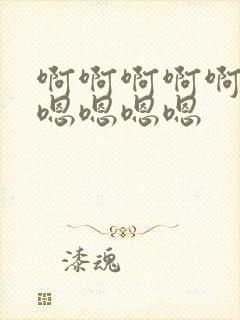 啊啊啊啊啊
嗯嗯嗯嗯
漆魂